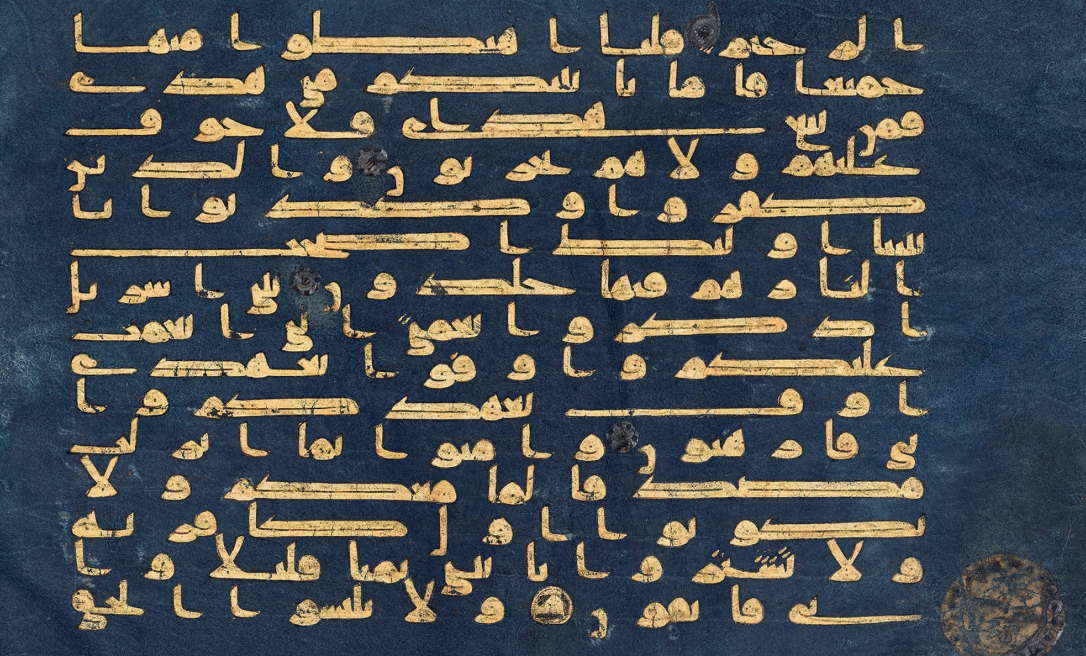 الرحيم قلنا اهبطوا منها
جميعا فاما ياتينكم مني هدى
فمن تبع هداي فلا خوف
عليهم ولا هم يحزنون والذين
كفروا وكذبوا با
يتنا اولئك اصحب
النار هم فيها خلدون يبني اسريل
اذكروا نعمتي التي انعمت
عليكم واوفوا بعهدي
اوف بعهدكم وا
يي فارهبون وامنوا بما انزلت
مصدقا لما معكم ولا
تكونوا اول كافر به
ولا تشتروا بايتي ثمنا قليلا وا
يي فاتقون ولا تلبسوا الحق